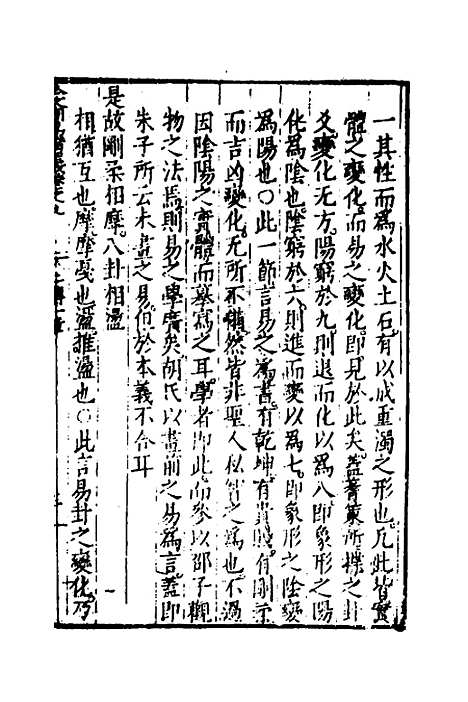 一其性而爲水火土石有以成重濁之形也凡此皆實
體之變化而易之變化即見於此矣蓋蓍策所揲之卦
爻變化无方陽窮於九則退而化以爲八即象形之陽
化爲陰也陰窮於六則進而變以爲七即象形之陰變
爲陽也○此一節言易之爲書有乾坤有貴賤有剛柔
而吉凶變化无所不備然皆非聖人私智之爲也不過
因陰陽之實體而摹寫之耳學者即此而參以邵子觀
物之法焉則易之學廣矣胡氏以畫前之易爲言蓋即
朱子所云未畫之易但於本義不合耳
是故剛柔相摩八卦相盪
相猶互也摩摩戞也盪推盪也○此言易卦之變化乃